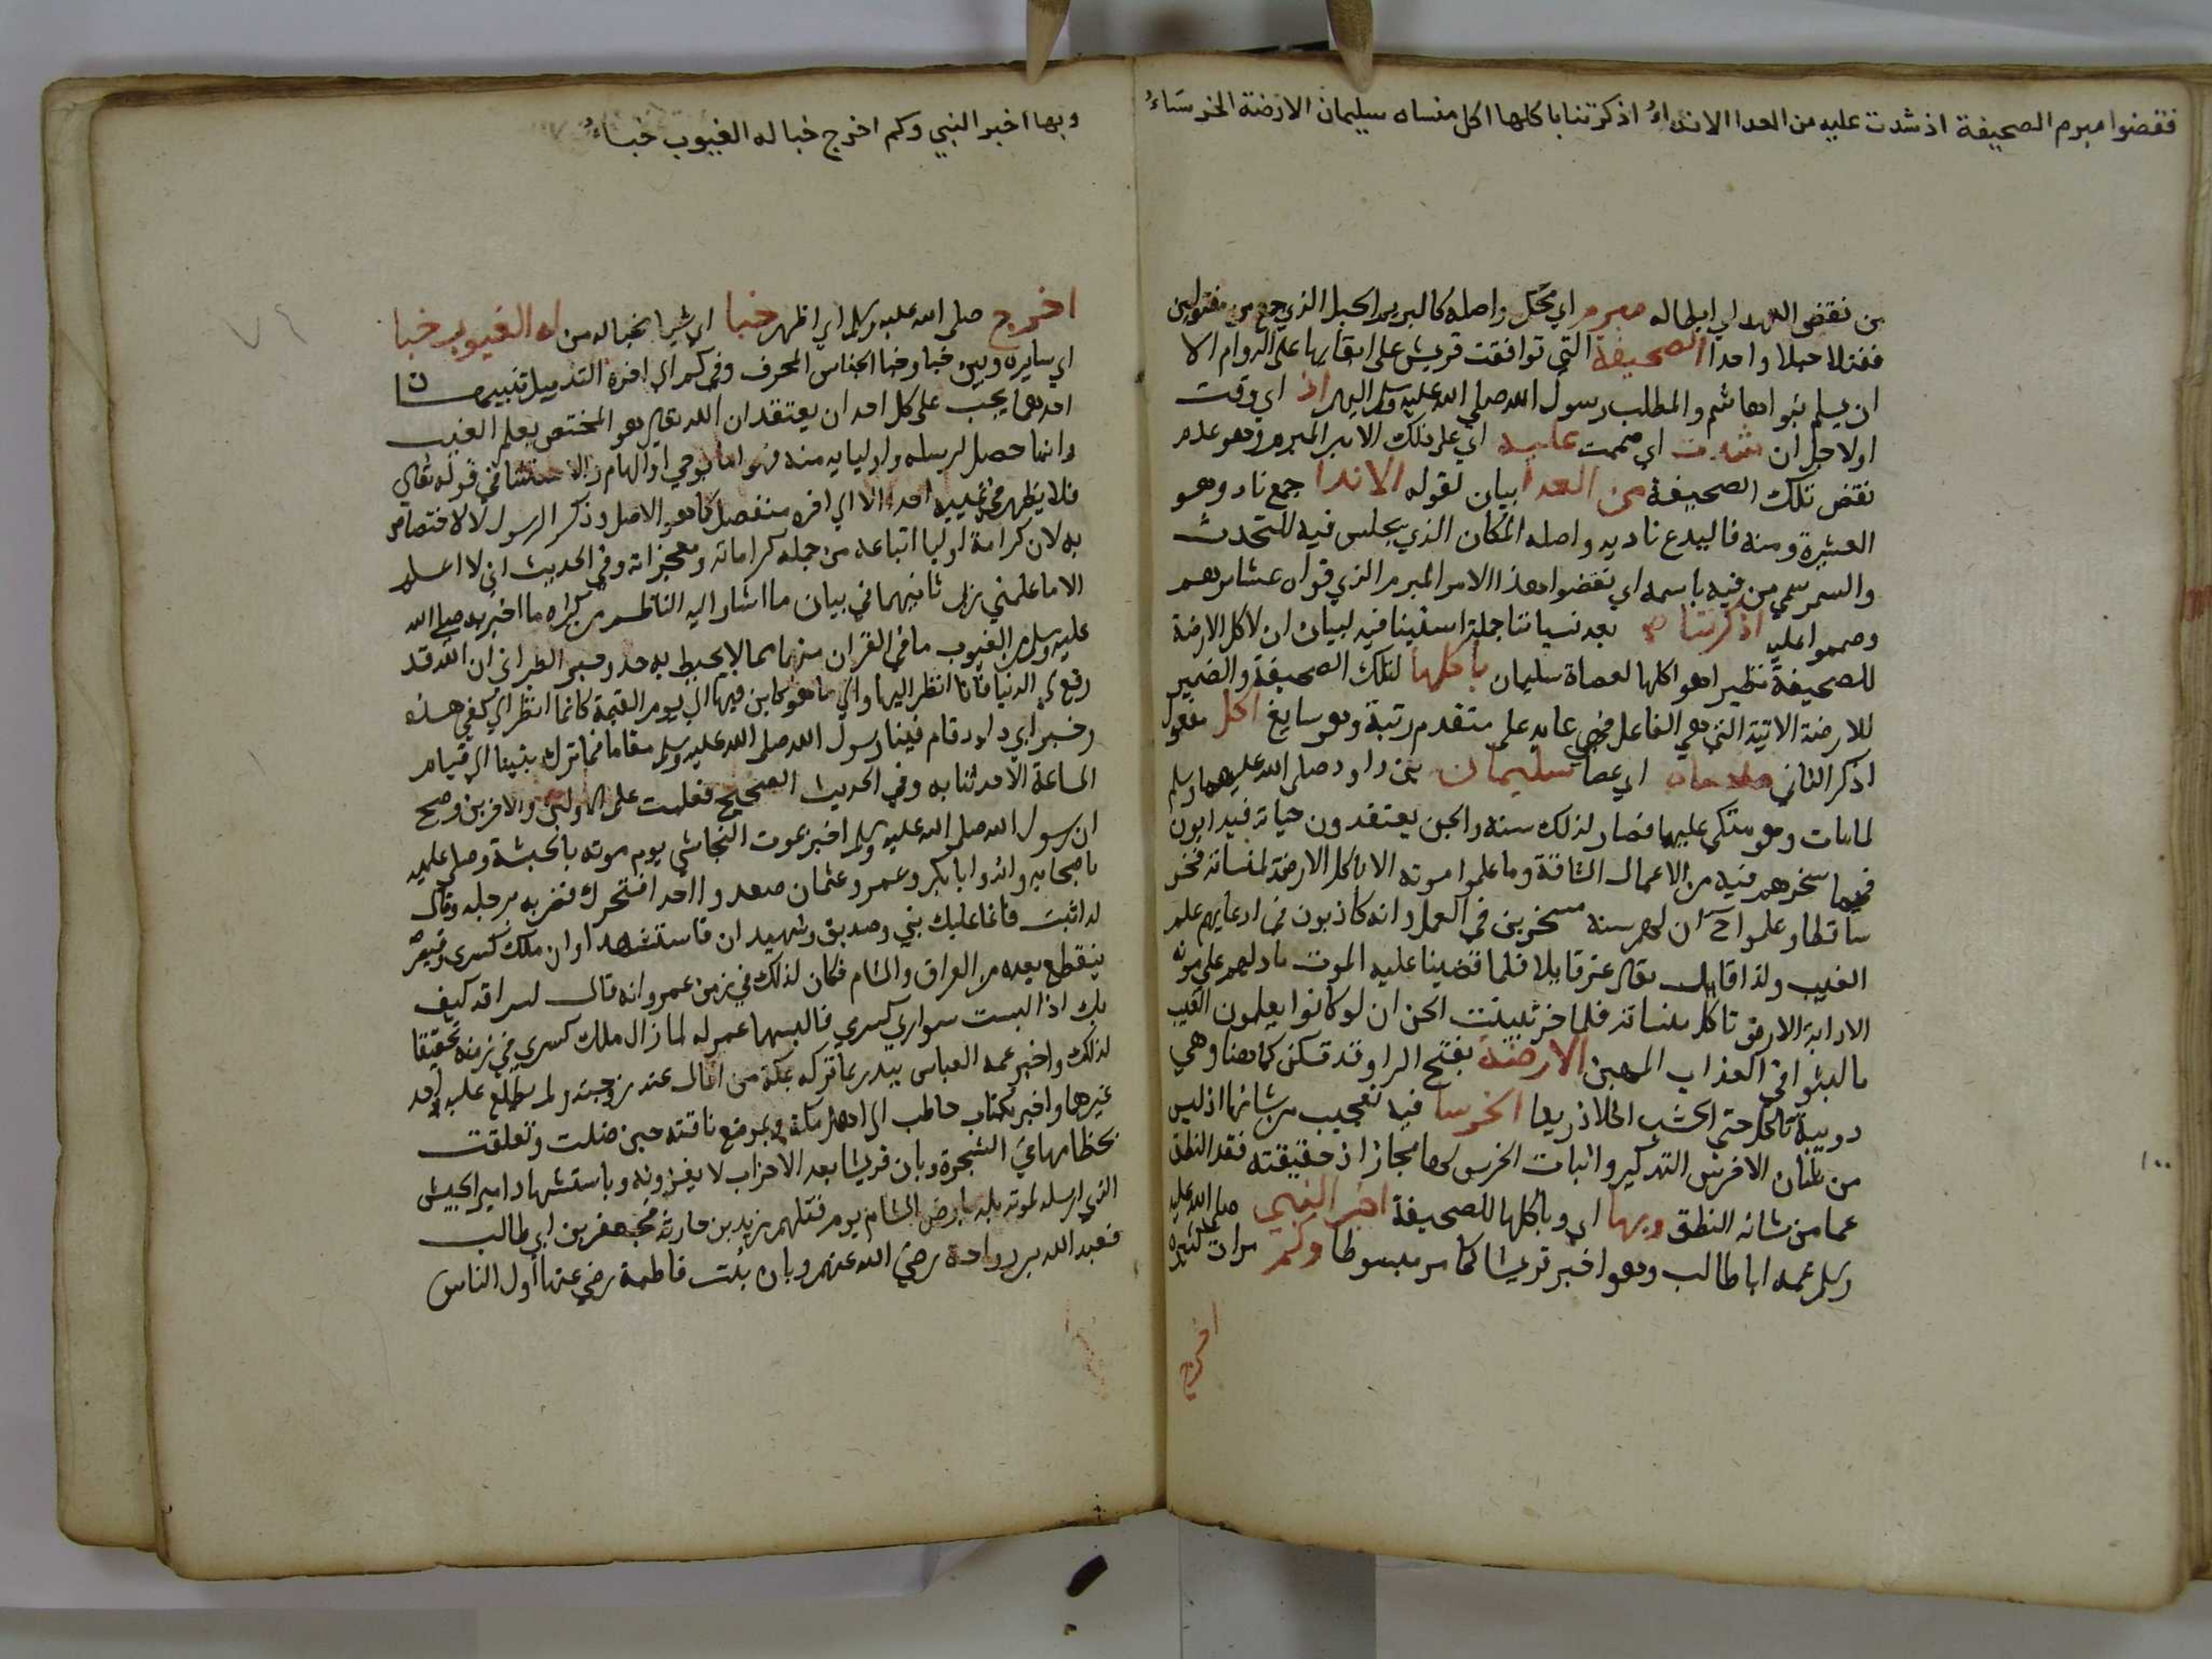 فنقضوا مبرم الصحيفة اذ شدت عليه من العدا الانداءُ اذكرتنا باكلها اكل منساه سليمان الارضة الخرساءُ
من نقض العهد اي ابطاله مبرم اي محكم واصله كالبريم الحبل الذي جمع من مفتولين
ففتلا حبلا واحدا الصحيفة التي توافقت قريش على ابقايها على الدوام الا
ان يسلم بنوا هاشم والمطلب رسول الله صلى الله عليه وسلم اليهم اذ اي وقت
او لاجل ان شدت اي صممت عليه اي على ذلك الامر المبرم وهو عدم
نقض تلك الصحيفة من العدا بيان لقوله الاندا جمع ناد وهو
العشيرة ومنه فاليدع ناديه واصله المكان الذي يجلس فيه للتحدث
والسمر سمي من فيه باسمه اي نقضوا هذا الامر المبرم الذي قواه عشايرهم
وصمموا عليه اذكرتنا بعد نسياننا جملة استينافيه لبيان ان لاكل الارضة
للصحيفة نظيرا هو اكلها لعصاة سليمان باكلها لتلك الصحيفة والضمير
للارضة الاتية التي هي الفاعل فهي عايد على متقدم رتبة وهو سايغ اكل مفعول
اذكر الثاني منساه اي عصا سليمان بن داود صلى الله عليهما وسلم
لما مات وهو متكي عليها فصار لذلك سنة والجن يعتقدون حياته فيدابون
فيما سخرهم فيه من الاعمال الشاقة وما علموا موته الا باكل الارضة لمنساته فخر
ساقطا وعلموا ح ان لهم سنة مسخرين في العمل وانه كاذبون في ادعايهم علم
الغيب ولذا قال تعالى عز قايلا فلما قضينا عليه الموت ما دلهم على موته
الا دابة الارض تاكل منساته فلما خر تبينت الجن ان لو كانوا يعلمون الغيب
ما لبثوا في العذاب المهين الارضة بفتح الرا وقد تسكن كما هنا وهي
دويبة تاكل حتى الخشب الخرسا فيه تعجيب من شانها اذ ليس
من شان الاخرس التذكير واثبات الخرس لها مجاز اذ حقيقته فقد النطق
عما من شانه النطق وبها اي وباكلها للصحيفة اخبر النبي صلى الله عليه
وسلم عمه ابا طالب وهو اخبر قريشا كما مر مبسوطا وكم مرات كثيرة
اخرج
١٠٠
وبها اخبر النبي وكم اخرج خبا له الغيوب خباءُ
اخرج صلى الله عليه وسلم اي اظهر خبا اي شيا مخبا له من له الغيوب خبا
اي سايره وبين خبا وخبا الجناس المحرف وفي كم الى اخره التذييل تنبيهان
احدهما يجب على كل احد ان يعتقد ان الله تعالى هو المختص بعلم الغيب
وانما حصل لرسله واوليايه منه فهو اما بوحي او الهام والاستثنا في قوله تعالى
فلا يظهر على غيبه احدا الا الى اخره منفصل كما هو الاصل وذكر الرسول لا لاختصاص
به لان كرامة اوليا اتباعه من جملة كراماته ومعجزاته وفي الحديث اني لا اعلم
الا ما علمني ربي ثانيهما في بيان ما اشار اليه الناظم من كثرة ما اخبر به صلى الله
عليه وسلم من الغيوب ما في القران منها مما لا يحيط به حد وخبر الطبراني ان الله قد
رفع لي الدنيا فانا انظر اليها والى ما هو كاين فيها الى يوم القيمة كانما انظر الى كفي هذه
وخبر ابي داود قام فينا رسول الله صلى الله عليه وسلم مقاما فما ترك شيا الى قيام
الساعة الا حدثنا به وفي الحديث الصحيح فعلمت علم الاولين والاخرين وصح
ان رسول الله صلى الله عليه وسلم اخبر بموت النجاشي يوم موته بالحبشة وصلى عليه
باصحابه وانه وابا بكر وعمر وعثمان صعدوا احدا فتحرك فضربه برجله وقال
له اثبت فانما عليك نبي وصديق وشهيدان فاستشهدا وان ملك كسرى وقيصر
ينقطع بعده من العراق والشام فكان لذلك في زمن عمر وانه قال لسراقه كيف
بك اذا لبست سواري كسري فالبسهما عمر له لما زال ملك كسري في زمنه تحقيقا
لذلك واخبر عمه العباس ببدر بما تركه بمكة من المال عند زوجته ولم يطلع عليه احد
غيرها واخبر بكتاب حاطب الى اهل مكة وبموضع ناقته حين ضلت وتعلقت
بخطامها في الشجرة وبان قريشا بعد الاحزاب لا يغزونه وباستشهاد امير الجيش
الذي ارسله لموته بلد بارض الشام يوم قتلهم زيد بن حارثة فجعفر بن ابي طالب
فعبد الله بن رواحة رضي الله عنهم وبان بنت فاطمة رضي عنها اول الناس